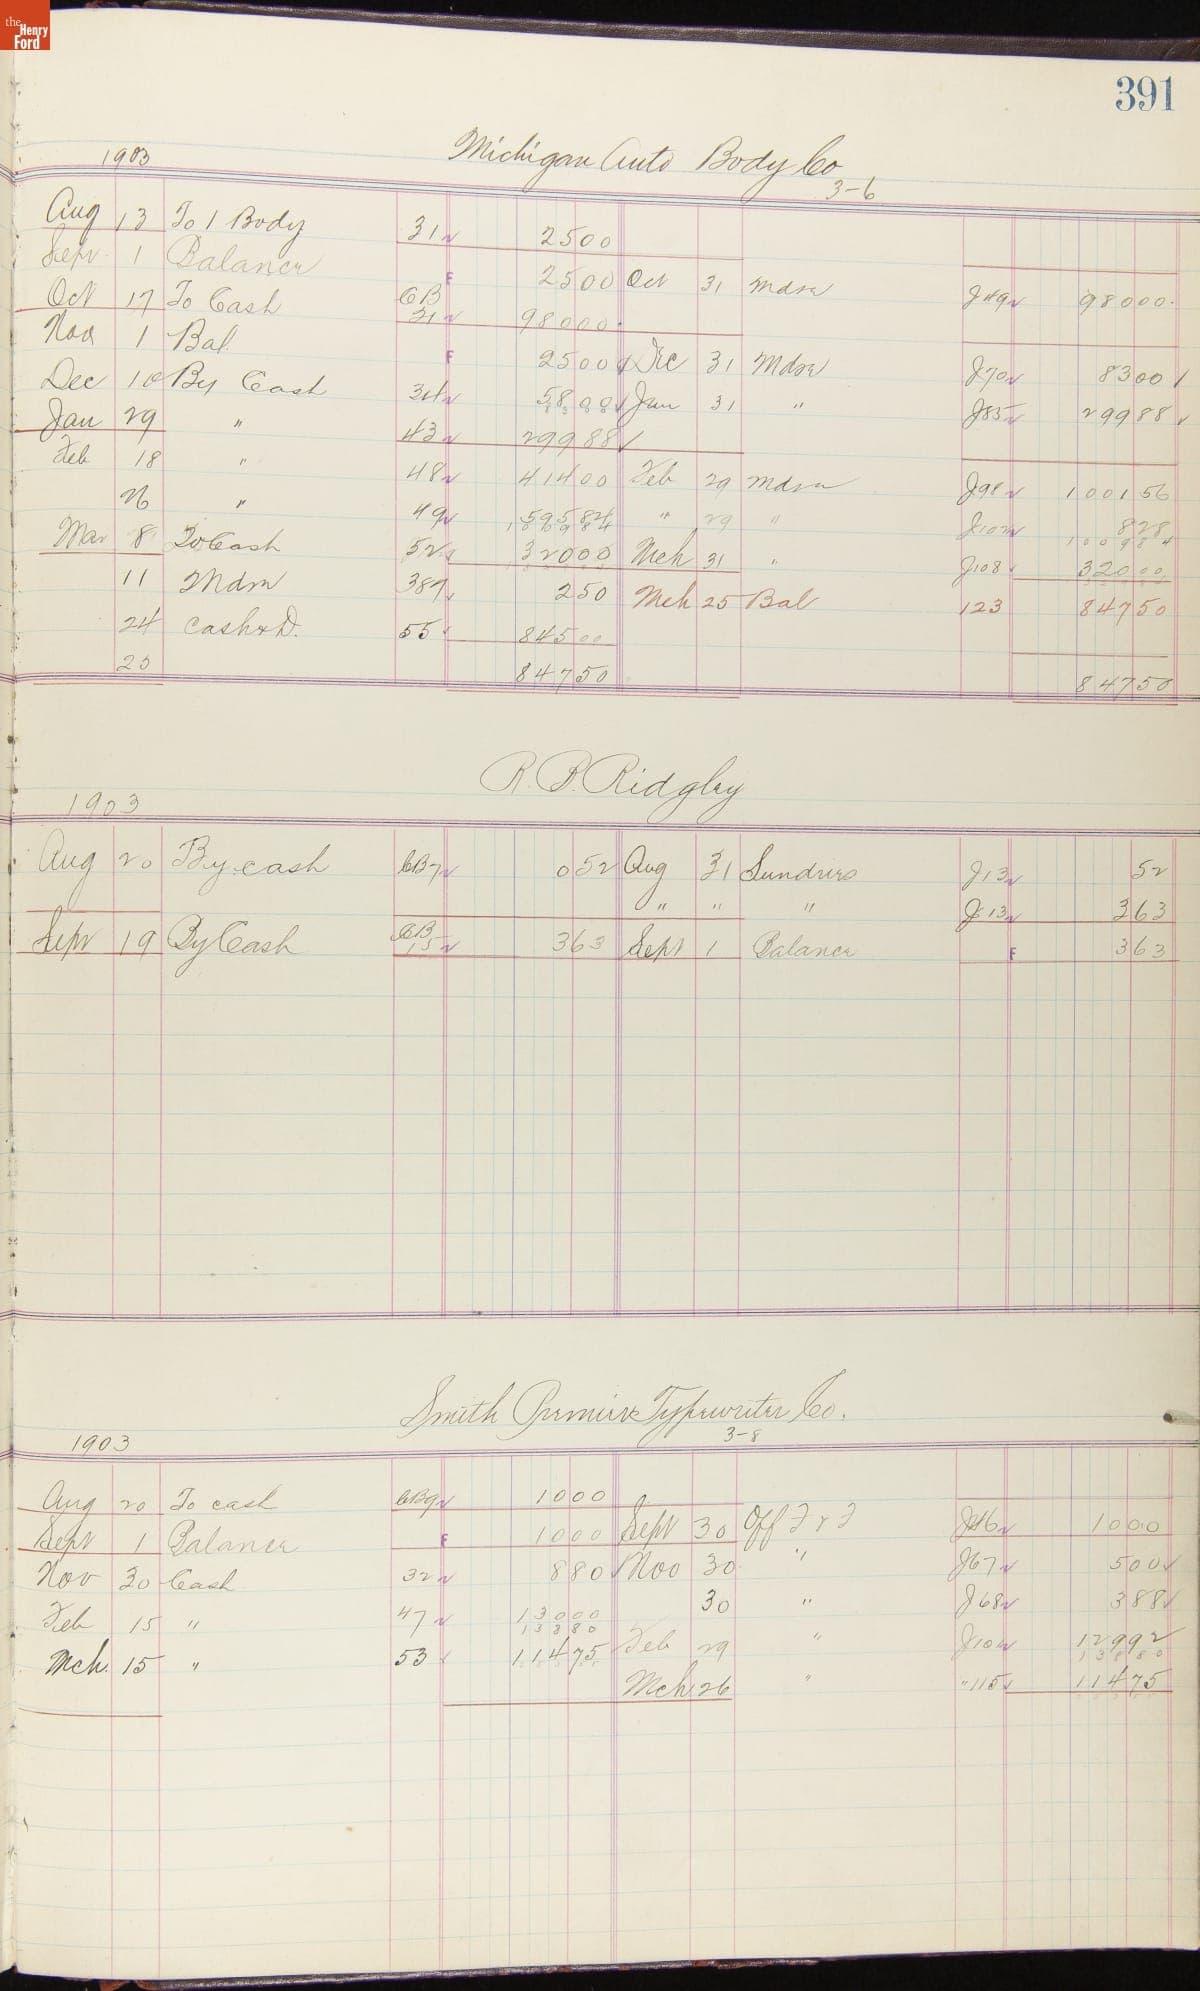 the Henry Ford
391
1903 Michigan Auto Body Co
3-6
Aug 13 To 1 Body 31 2500
Sept 1 Balance F 2500 Oct 31 Mdse J49 98000
Oct 17 To Cash CB 21 98000
Nov 1 Bal. F 2500 Dec 31 Mdse J70 8300
Dec 10 By Cash 34 5800 Jan 31 " J85 29988
8300
Jan 29 " 43 29988
Feb 18 " 48 41400 Feb 29 Mdse J98 100156
26 " 49 59584 " 29 " J102 828
100984 100984
Mar 8 To Cash 52 32000 Mch 31 " J108 32000
11 Mdse 387 250 Mch 25 Bal 123 84750
24 Cash & D. 55 84500
25 84750 84750
R. P. Ridgley
1903
Aug 20 By cash CB7 052 Aug 31 Sundries J13 52
" " " J13 363
Sept 19 By Cash CB 15 363 Sept 1 Balance F 363
Smith Premier Typewriter Co.
1903 3-8
Aug 20 To cash CB9 1000
Sept 1 Balance F 1000 Sept 30 Off F & F J46 1000
Nov 30 Cash 32 880 Nov 30 " J67 500
Feb 15 " 47 13000 30 " J68 388
13880
Mch. 15 " 53 11475 Feb 29 " J102 12992
13880
Mch 26 " " 115 11475